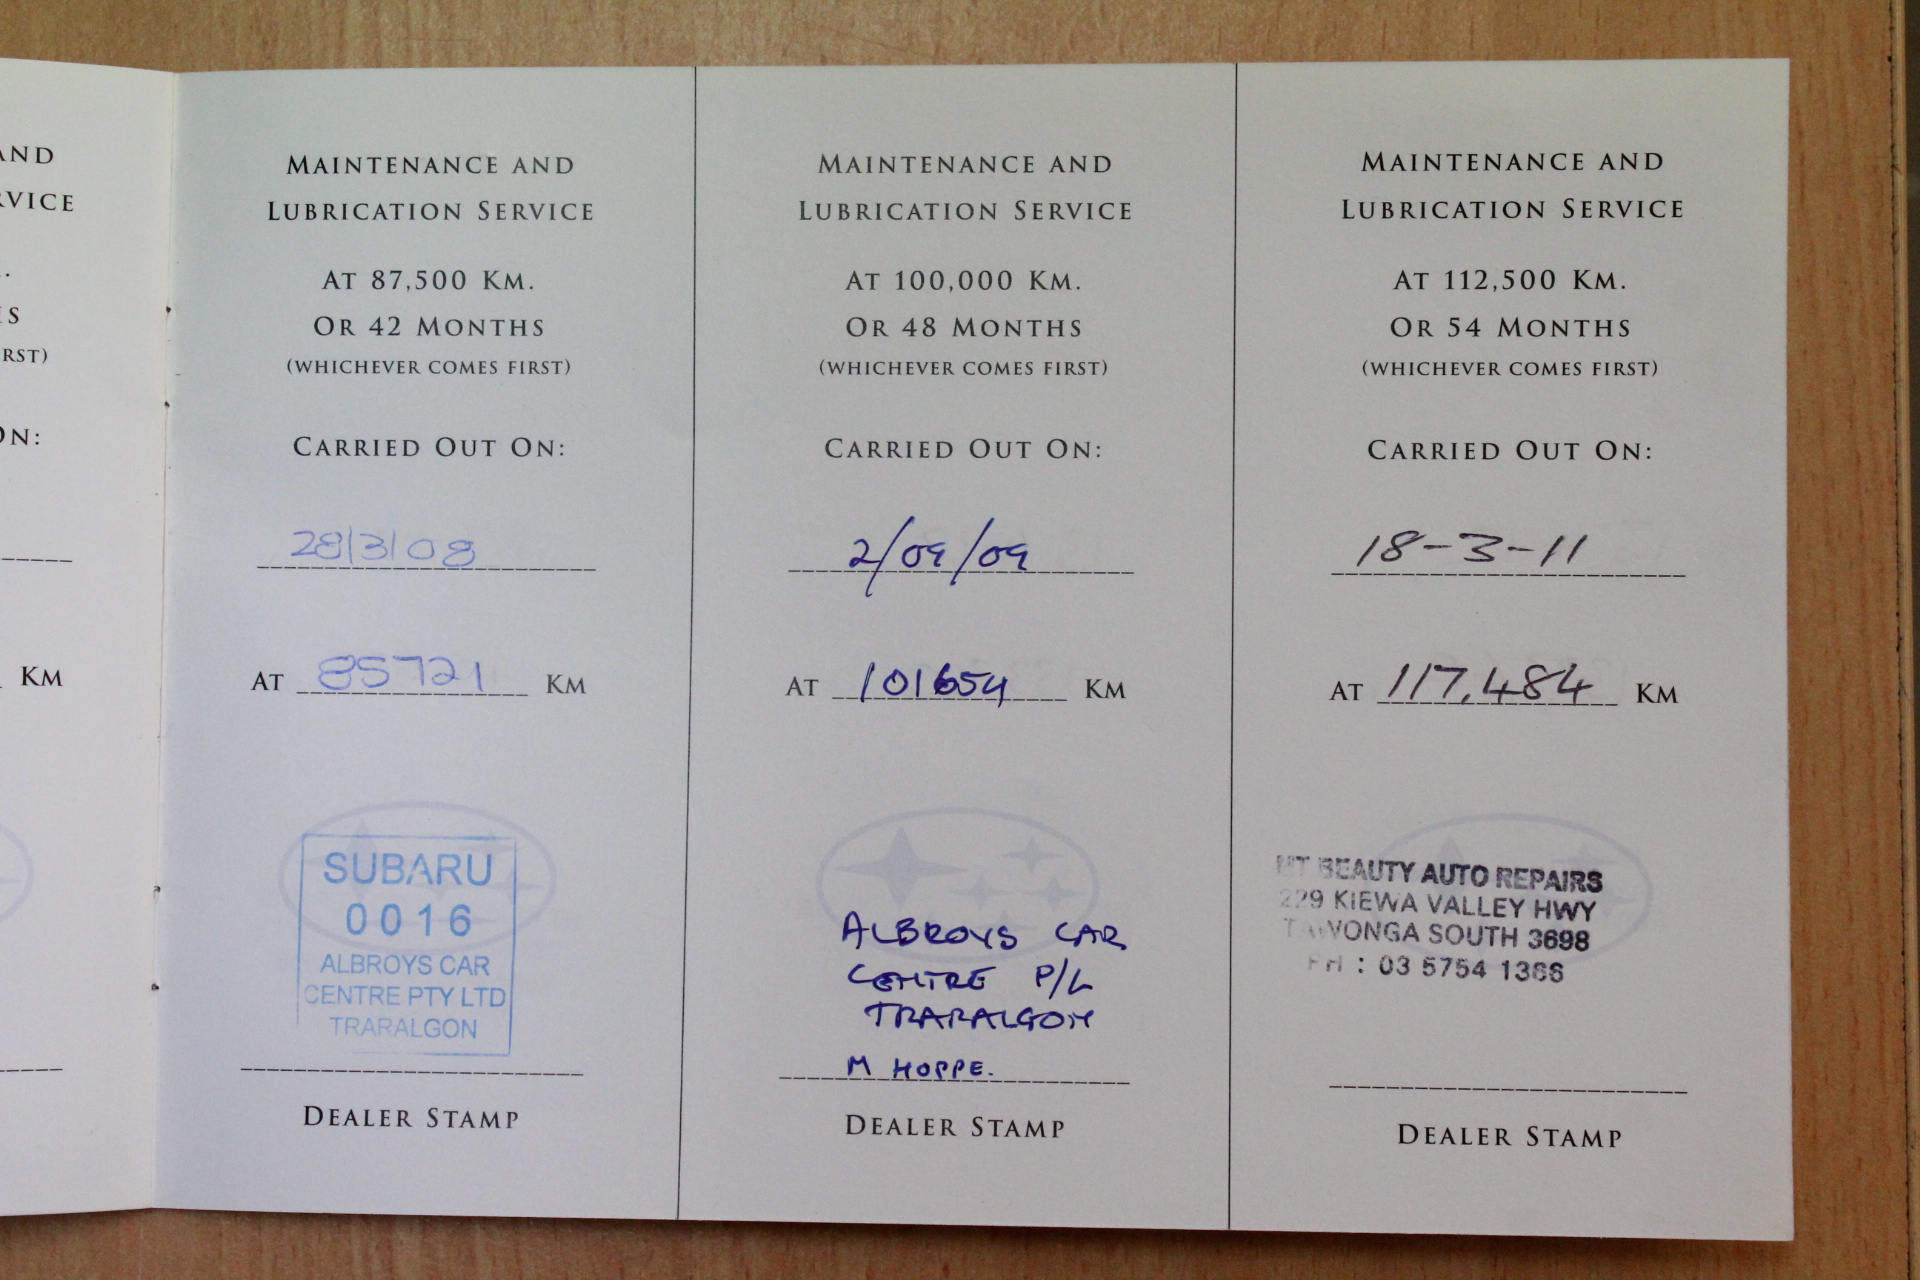 AND
RVICE
IS
RST)
ON:
KM
MAINTENANCE AND
LUBRICATION SERVICE
AT 87,500 KM.
OR 42 MONTHS
(WHICHEVER COMES FIRST)
CARRIED OUT ON:
28/3/08
AT 85721 KM
SUBARU
0016
ALBROYS CAR
CENTRE PTY LTD
TRARALGON
DEALER STAMP
MAINTENANCE AND
LUBRICATION SERVICE
AT 100,000 KM.
OR 48 MONTHS
(WHICHEVER COMES FIRST)
CARRIED OUT ON:
2/09/09
AT 101654 KM
ALBROYS CAR
CENTRE P/L
TRARALGON
M HOPPE.
DEALER STAMP
MAINTENANCE AND
LUBRICATION SERVICE
AT 112,500 KM.
OR 54 MONTHS
(WHICHEVER COMES FIRST)
CARRIED OUT ON:
18-3-11
AT 117,484 KM
MT BEAUTY AUTO REPAIRS
229 KIEWA VALLEY HWY
TAWONGA SOUTH 3698
PH : 03 5754 1366
DEALER STAMP